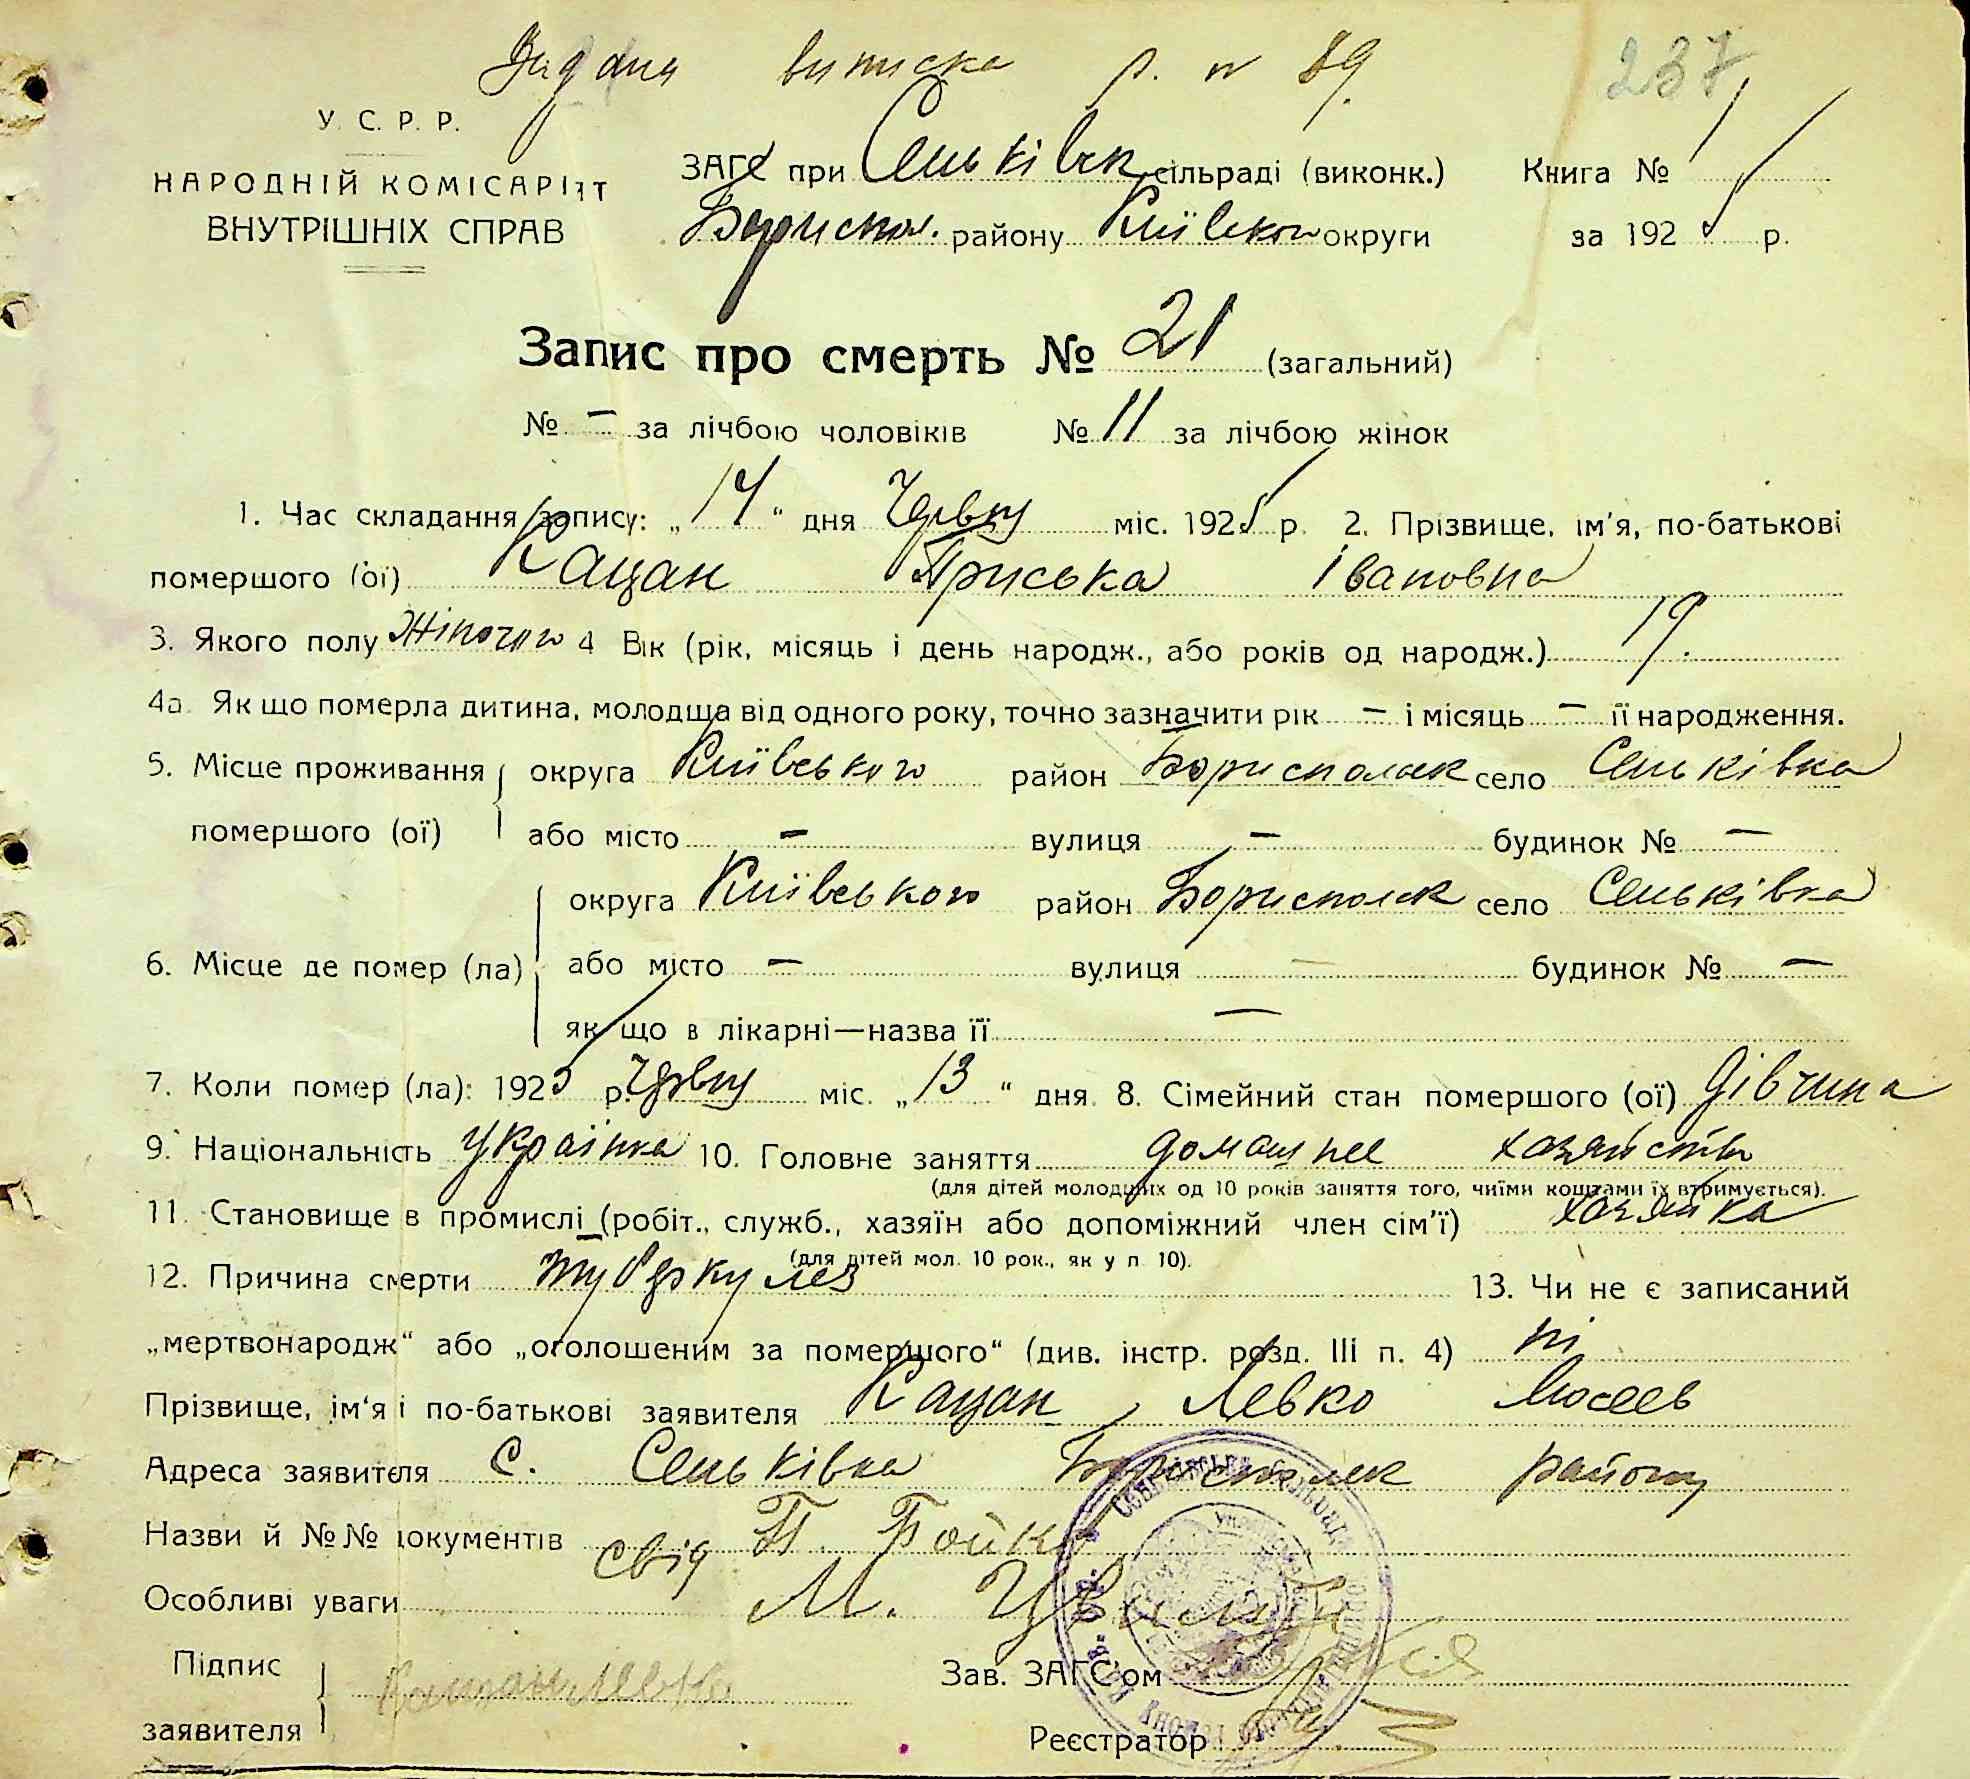 Видана виписка р. № 89.
237
У. С. Р. Р.
НАРОДНІЙ КОМІСАРІЯТ
ВНУТРІШНІХ СПРАВ
ЗАГС при Сеньківск сільраді (виконк.) Книга № 1
Бориспол. району Київсько округи за 1925 р.
Запис про смерть № 21 (загальний)
№ – за лічбою чоловіків № 11 за лічбою жінок
1. Час складання запису: „14“ дня Червня міс. 1925 р. 2. Прізвище, ім'я, по-батькові
помершого (ої) Кацан Приська Івановна
3. Якого полу Жіночого 4 Вік (рік, місяць і день народж., або років од народж.) 19.
4а. Як що померла дитина, молодша від одного року, точно зазначити рік – і місяць – її народження.
5. Місце проживання округа Київського район Бориспольск село Сеньківка
помершого (ої) або місто – вулиця – будинок № –
округа Київського район Бориспольск село Сеньківка
6. Місце де помер (ла) або місто – вулиця – будинок № –
як що в лікарні—назва її –
7. Коли помер (ла): 1925 р. Червня міс. „13“ дня 8. Сімейний стан помершого (ої) Дівчина
9. Національність Українка 10. Головне заняття домашнее хазяйство
(для дітей молодших од 10 років заняття того, чиїми коштами їх втримується).
11. Становище в промислі (робіт., служб., хазяїн або допоміжний член сім'ї) хазяйка
(для дітей мол. 10 рок., як у п. 10).
12. Причина смерти туберкулез 13. Чи не є записаний
„мертвонародж“ або „оголошеним за помершого“ (див. інстр. розд. III п. 4) ні
Прізвище, ім'я і по-батькові заявителя Кацан Левко Мосеев
Адреса заявителя с. Сеньківка Бориспольск району
Назви й №№ документів свід П. Бойко
Особливі уваги М.
Підпис заявителя Кацан Левко
Зав. ЗАГС'ом
Реєстратор